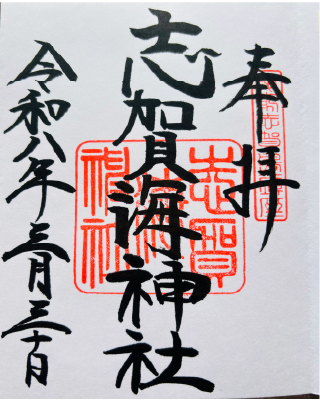 奉拝
志賀海神社
令和八年三月三十日
志賀海神社